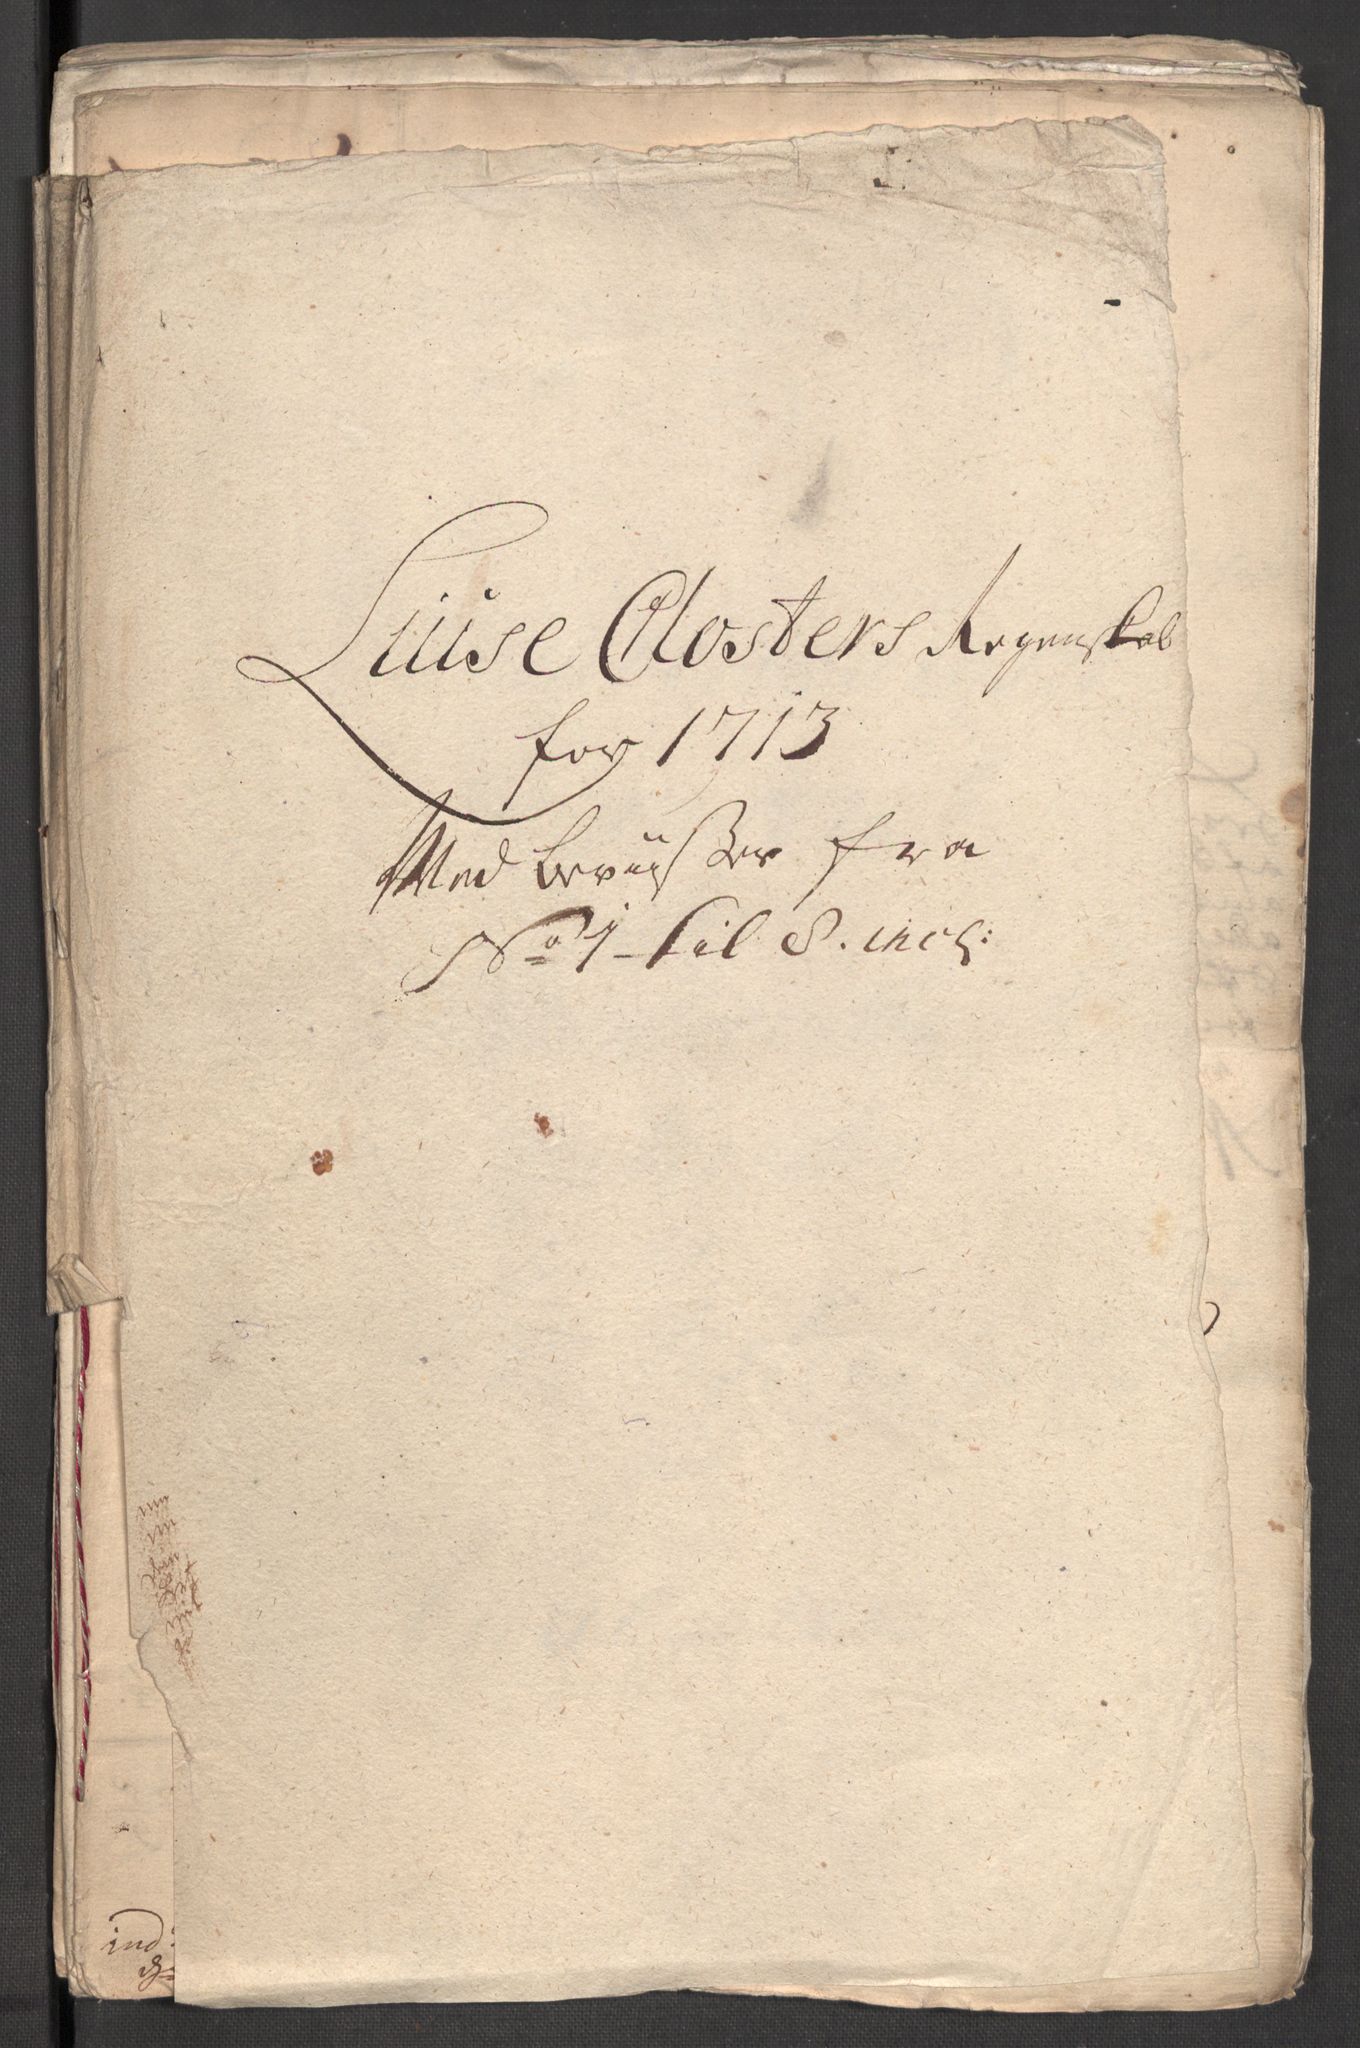 Liüse Closters Regenskab
for 1713
Med beviißer fra
No 1 til 8. incl:
ind: